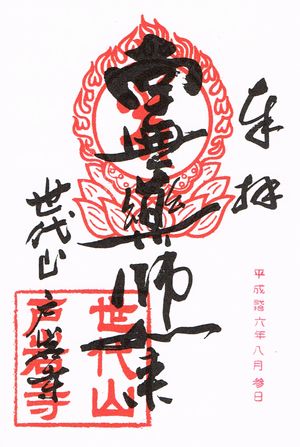 奉拝
薬師如来
世代山
戸寺
世代山
戸岩寺
平成拾六年八月参日